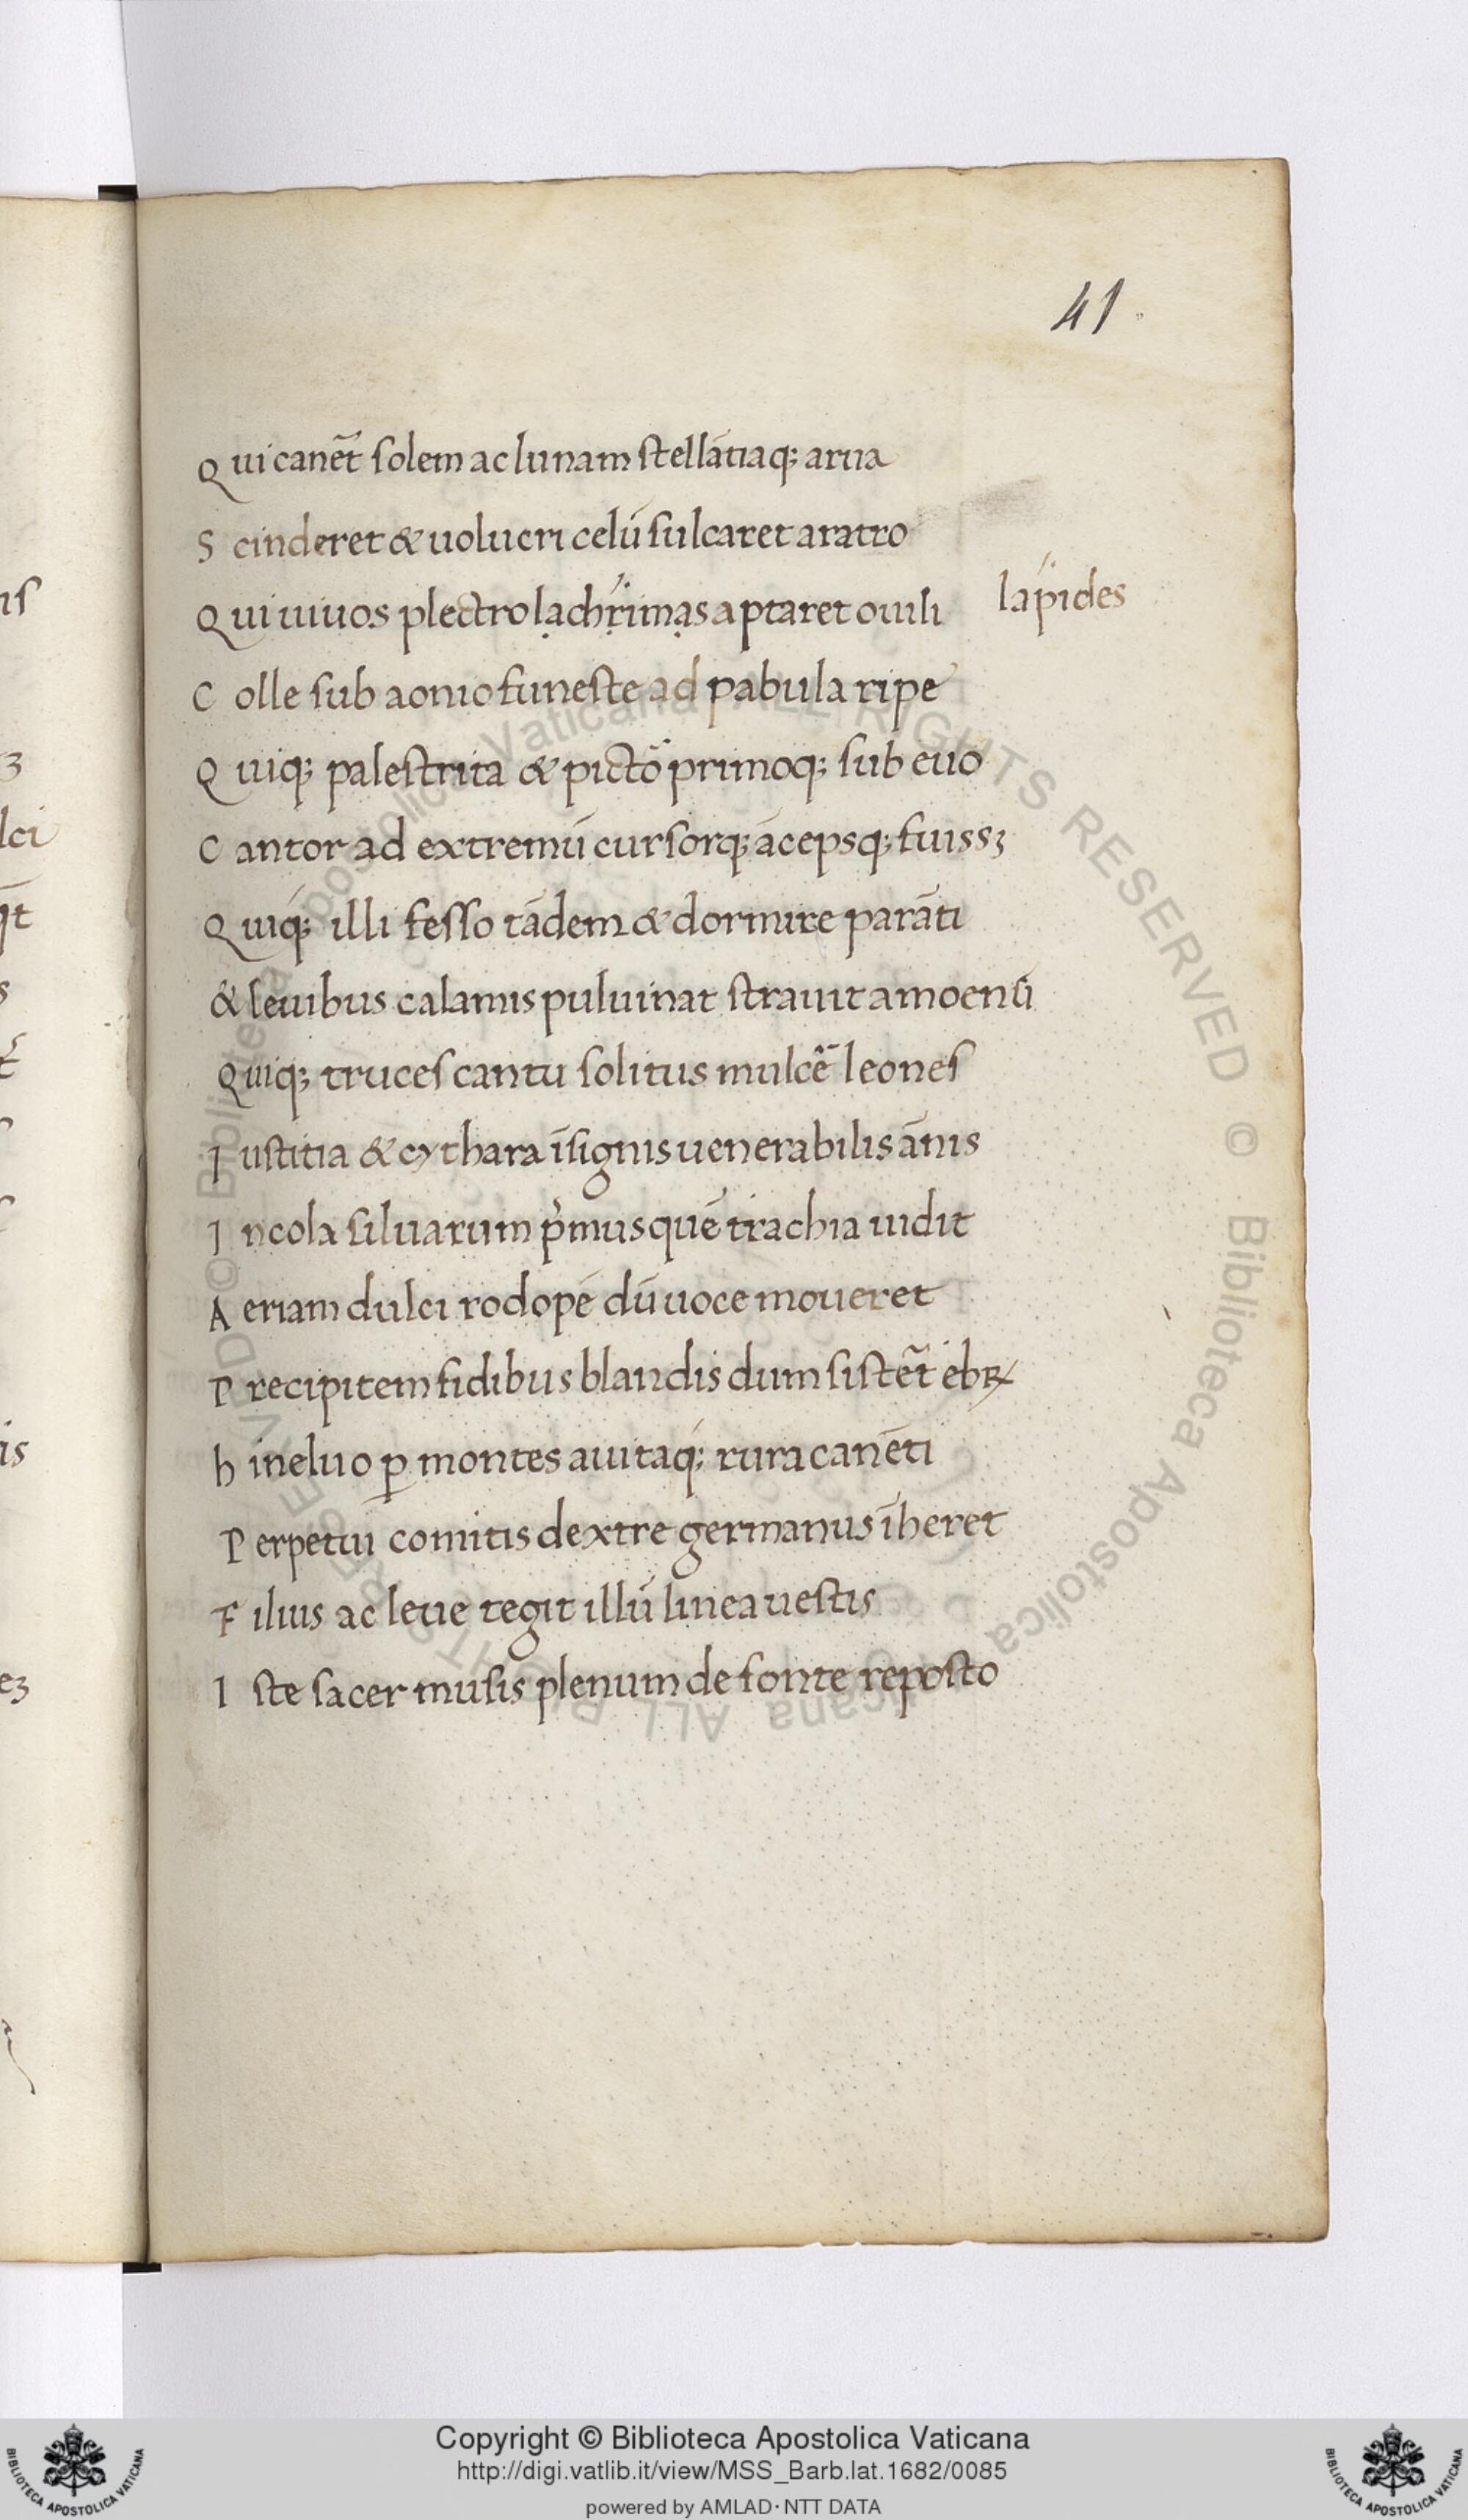 41.
Qui canēt solem ac lunam stellātiaq; arua
Scinderet & uolucri celū sulcaret aratro
Qui uiuos plectro lachrimas aptaret ouili lapides
Colle sub aonio funeste ad pabula ripe
Quiq; palestrita & pictō primoq; sub euo
Cantor ad extremū cursorq; ācepsq; fuissꝫ
Quiq; illi fesso tādem & dormire parāti
& leuibus calamis puluinar strauit amoenū
Quiq; truces cantu solitus mulcē leones
Iustitia & cythara īsignis uenerabilis ānis
Incola siluarum pͥmus quē trachia uidit
Aeriam dulci rodopē dū uoce moueret
Precipitem fidibus blandis dum sistēt ebꝝ
hinc luo ꝑ montes auitaq; rura canēti
Perpetui comitis dextre germanus īheret
Filius ac leue tegit illū linea uestis
Iste sacer musis plenum de fonte reposto
is
ꝫ
lci
s
is
eꝫ
© Biblioteca Apostolica Vaticana ALL RIGHTS RESERVED © Biblioteca Apostolica Vaticana ALL RIGHTS RESERVED
Copyright © Biblioteca Apostolica Vaticana
http://digi.vatlib.it/view/MSS_Barb.lat.1682/0085
powered by AMLAD·NTT DATA
BIBLIOTECA APOSTOLICA VATICANA
BIBLIOTECA APOSTOLICA VATICANA